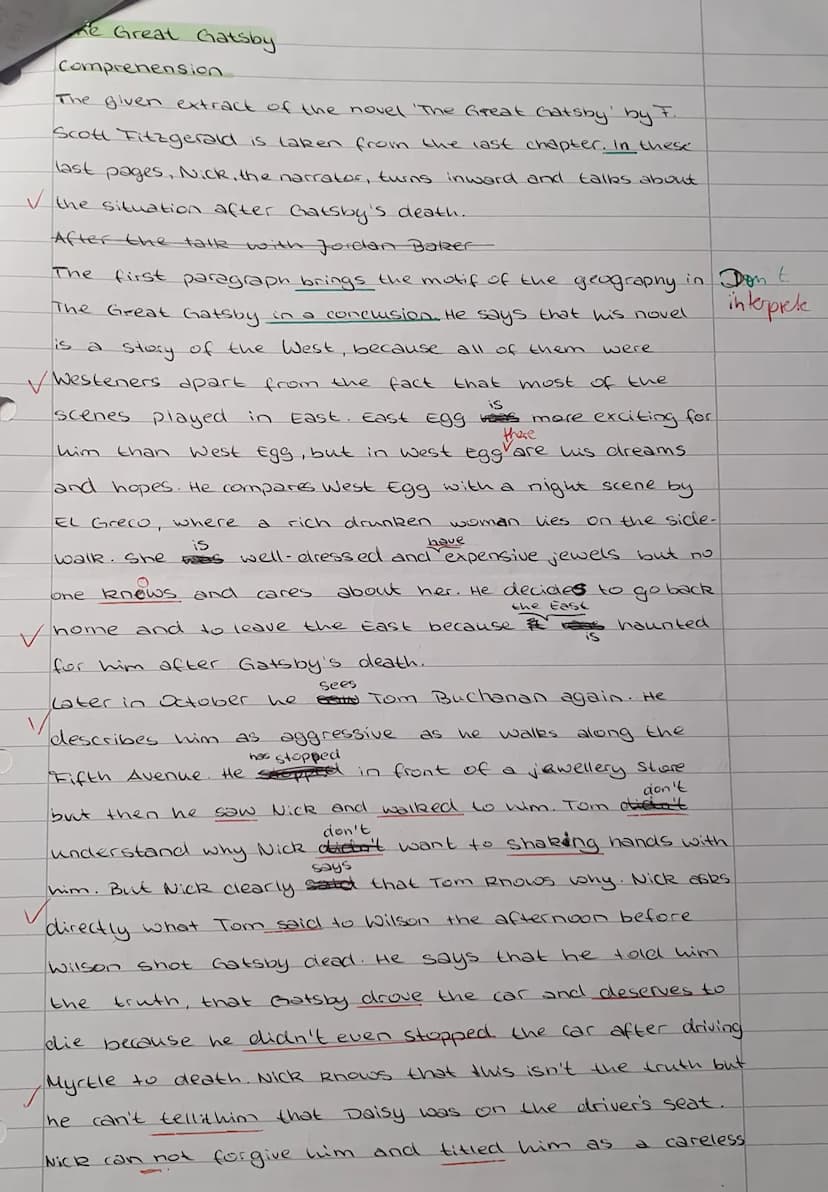 The Great Gatsby
Comprehension
The given extract of the novel 'The Great Gatsby' by F.
Scott Fitzgerald is taken from the last chapter. In these
last pages, Nick, the narrator, turns inward and talks about
the situation after Gatsby's death.
After the talk with Jordan Baker
The first paragraph brings the motif of the geography in Don't
The Great Gatsby in a conclusion. He says that his novel interprete
is a story of the West, because all of them were
Westeners apart from the fact that most of the
is
scenes played in East. East Egg was more exciting for
there
him than West Egg, but in West Egg are his dreams
and hopes. He compares West Egg with a night scene by
El Greco, where a rich drunken woman lies on the side-
is have
walk. She was well-dressed and expensive jewels but no
one knows and cares about her. He decides to go back
the East
home and to leave the East because it was haunted
is
for him after Gatsby's death.
sees
Later in October he saw Tom Buchanan again. He
describes him as aggressive as he walks along the
has stopped
Fifth Avenue. He stopped in front of a jewellery store
don't
but then he saw Nick and walked to him. Tom didn't
don't
understand why Nick didn't want to shaking hands with
says
him. But Nick clearly said that Tom knows why. Nick asks
directly what Tom said to Wilson the afternoon before
Wilson shot Gatsby dead. He says that he told him
the truth, that Gatsby drove the car and deserves to
die because he didn't even stopped the car after driving
Myrtle to death. Nick knows that this isn't the truth but
he can't tell it him that Daisy was on the driver's seat.
Nick can not forgive him and titled him as a careless